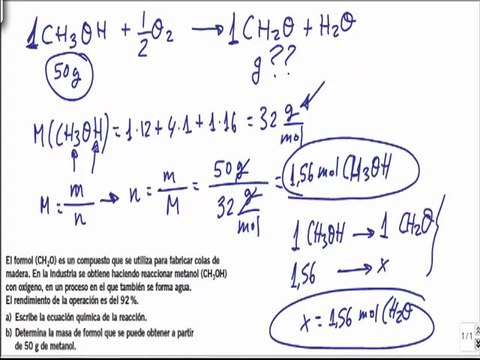 1CH3OH + 1/2 O2 → 1CH2O + H2O
50g
g??
M(CH3OH) = 1·12 + 4·1 + 1·16 = 32 g/mol
M = m/n → n = m/M = 50g / 32 g/mol = 1,56 mol CH3OH
1 CH3OH → 1 CH2O
1,56 → x
x = 1,56 mol CH2O
El formol (CH2O) es un compuesto que se utiliza para fabricar colas de
madera. En la industria se obtiene haciendo reaccionar metanol (CH3OH)
con oxígeno, en un proceso en el que también se forma agua.
El rendimiento de la operación es del 92 %.
a) Escribe la ecuación química de la reacción.
b) Determina la masa de formol que se puede obtener a partir
de 50 g de metanol.
1/1